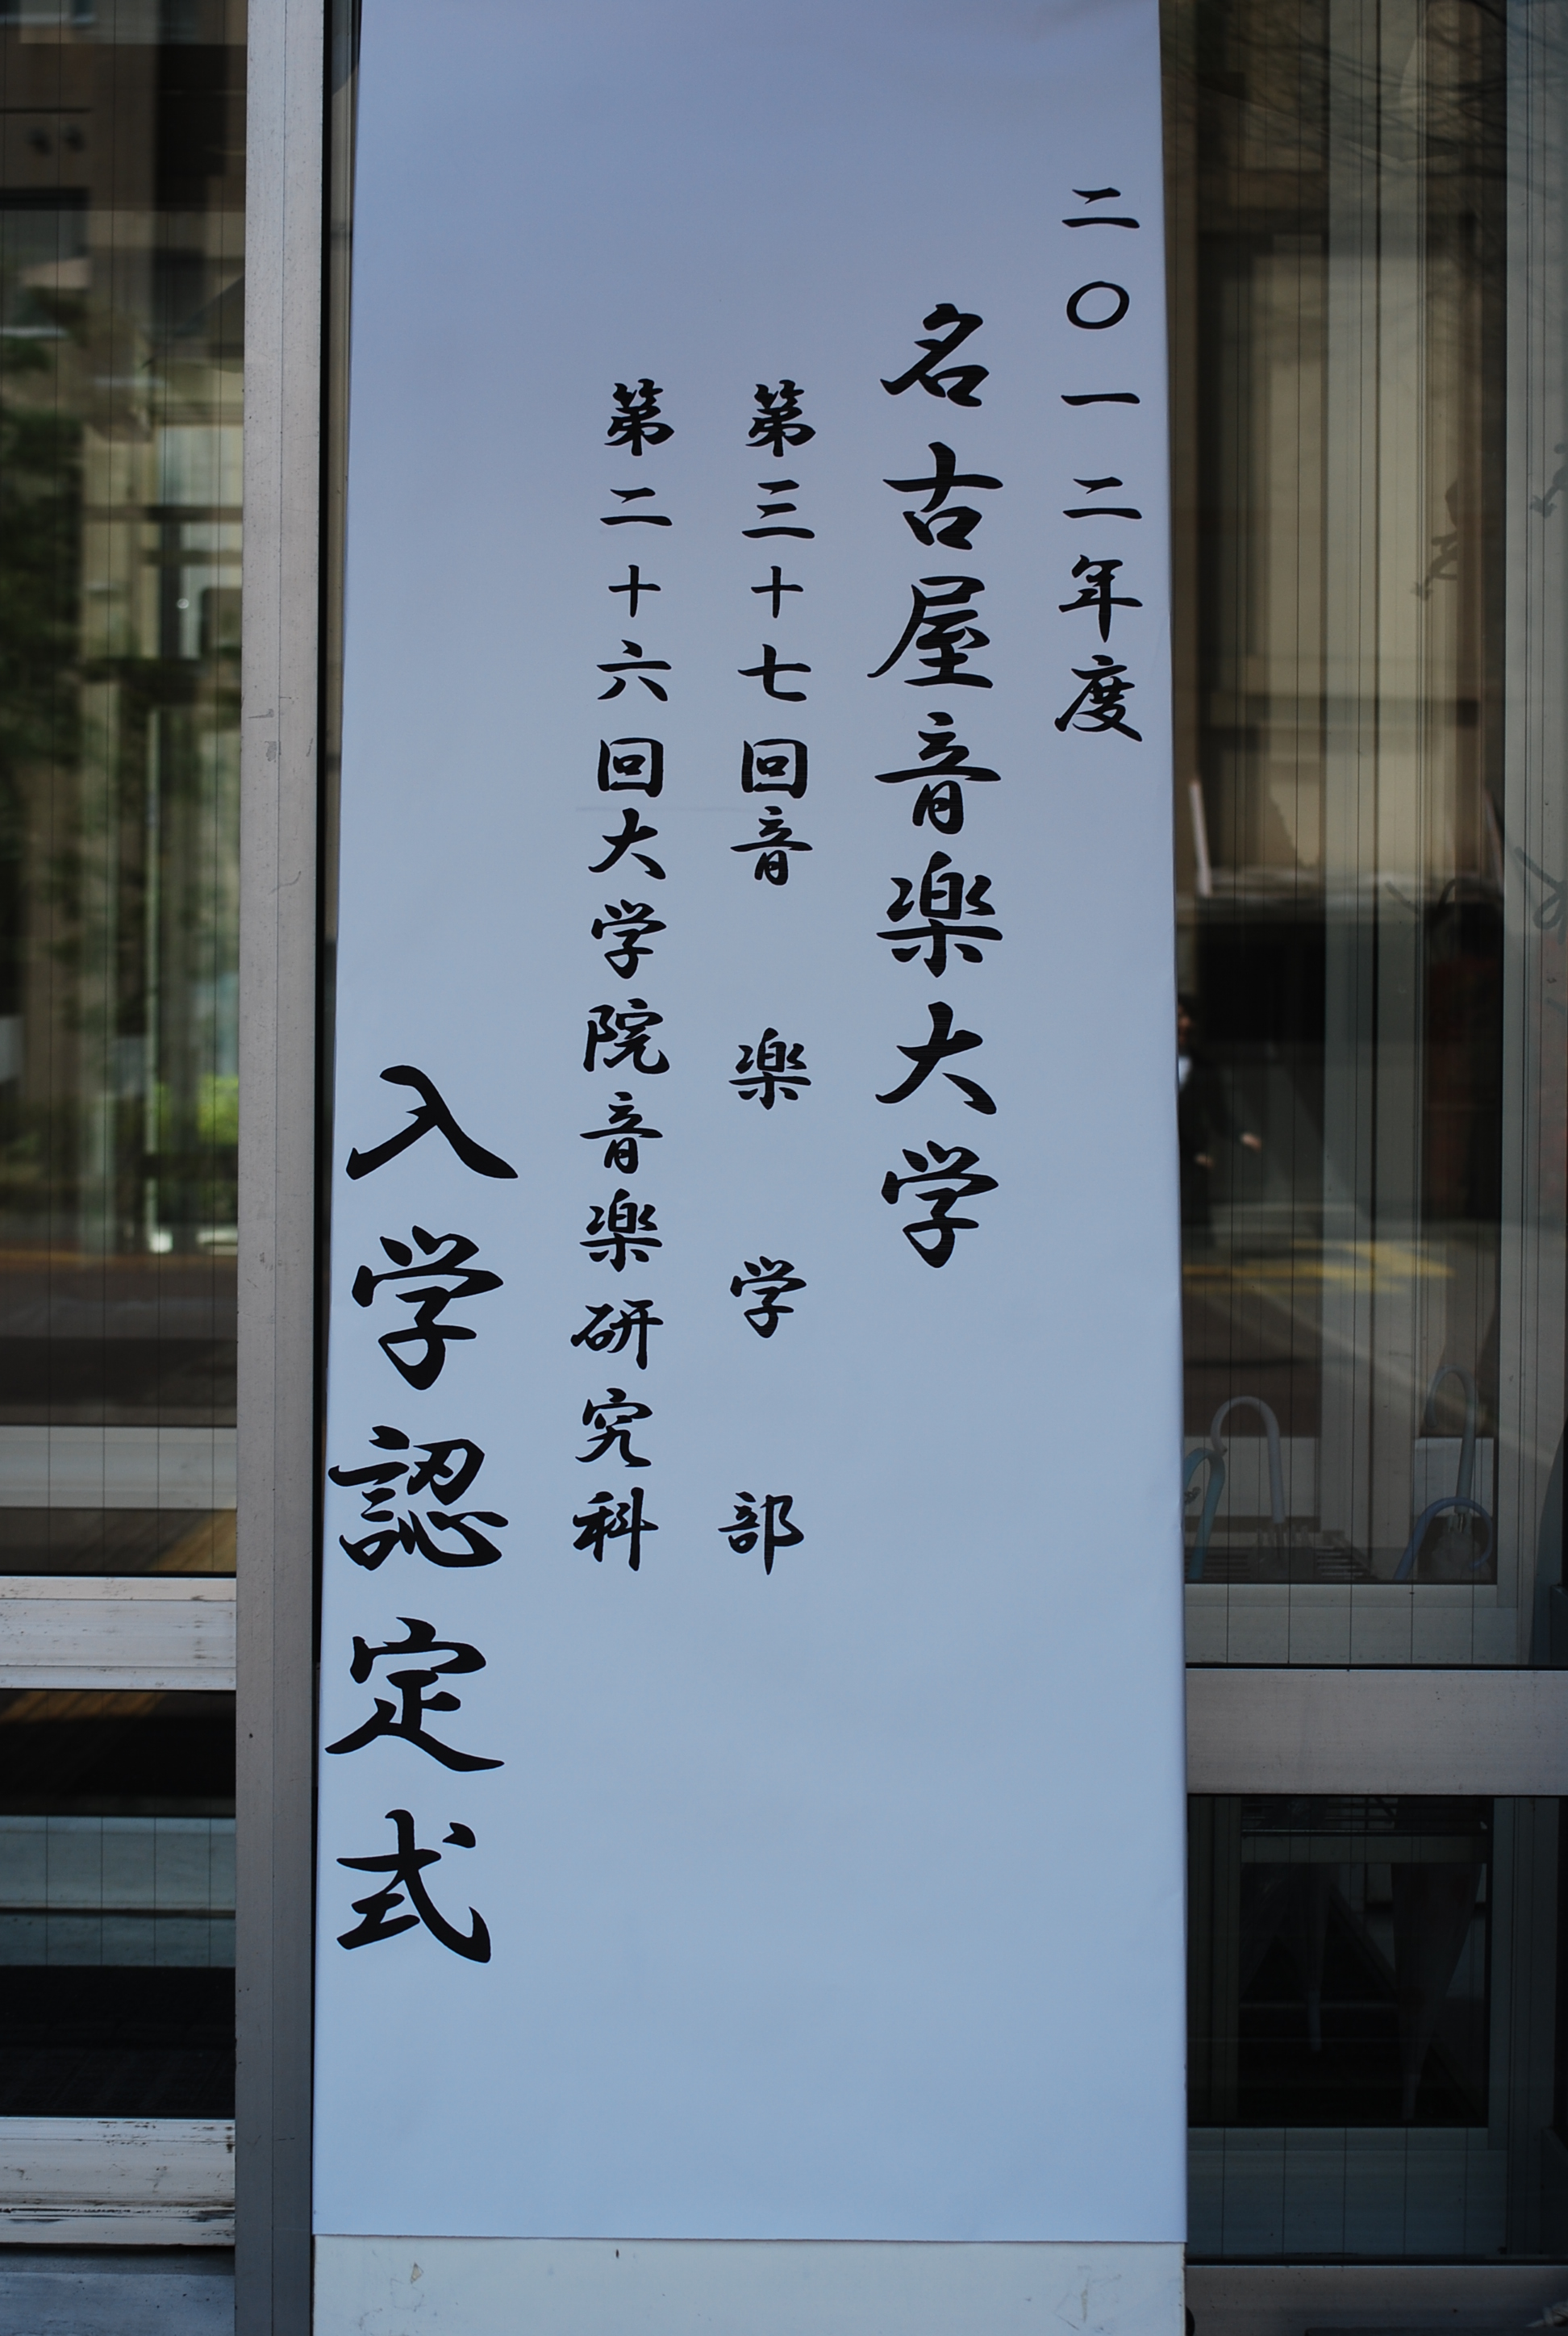 二〇一二年度
名古屋音楽大学
第三十七回音楽学部
第二十六回大学院音楽研究科
入学認定式